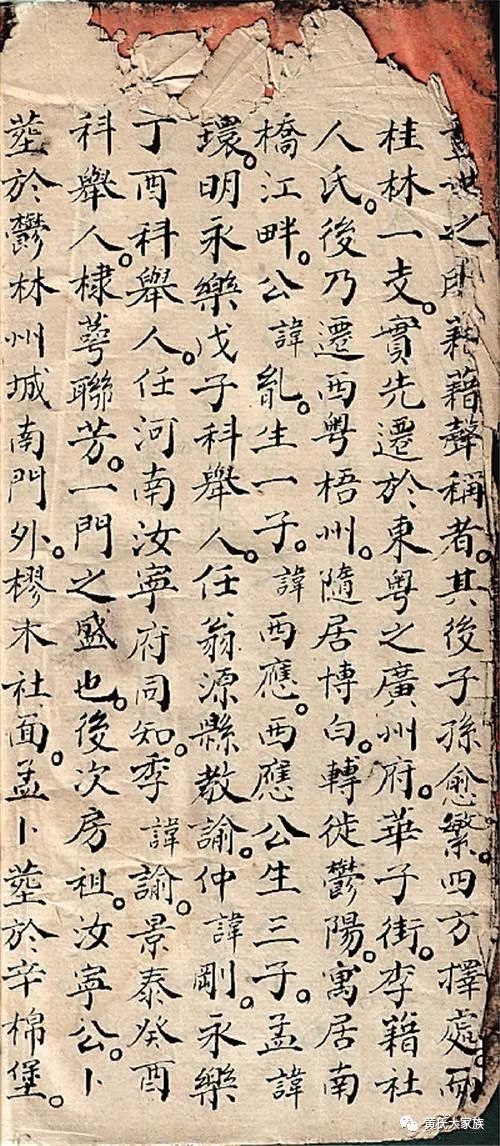 世之籍籍聲稱者。其後子孫愈繁。四方擇處。而
桂林一支。實先遷於東粤之廣州府。華子街。李籍社
人氏。後乃遷西粤梧州。隨居博白。轉徙鬱陽。寓居南
橋江畔。公諱亂。生一子。諱西應。西應公生三子。孟諱
環。明永樂戊子科舉人。任翁源縣教諭。仲諱剛。永樂
丁酉科舉人。任河南汝寧府同知。季諱諭。景泰癸酉
科舉人。棣萼聯芳。一門之盛也。後次房祖。汝寧公。卜
塟於鬱林州城南門外。樛木社面。孟卜塟於辛棉堡。
黄氏大家族